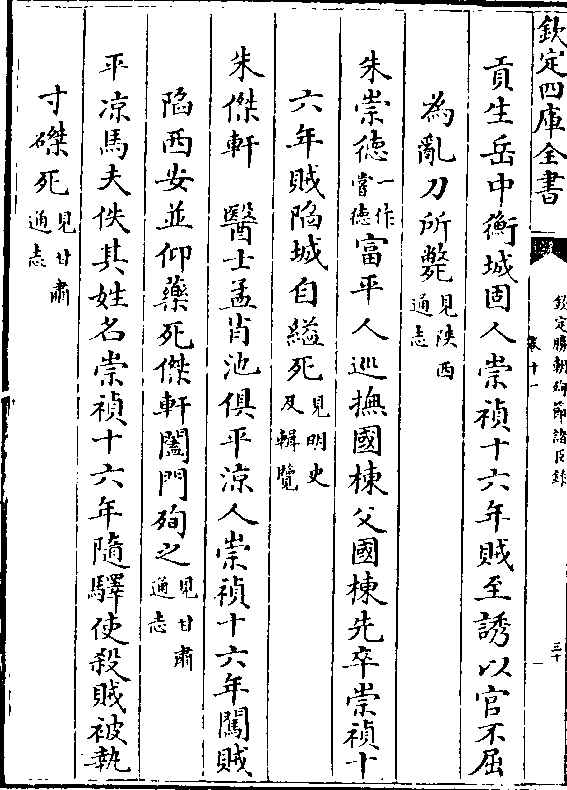 欽定四庫全書
欽定勝朝殉節諸臣錄
卷十一
三十
貢生岳中衡城固人崇禎十六年賊至誘以官不屈
為亂刀所斃見陝西通志
朱崇德一作常德富平人巡撫國棟父國棟先卒崇禎十
六年賊陷城自縊死見明史及輯覽
朱傑軒　醫士孟肖池俱平涼人崇禎十六年闖賊
陷西安並仰藥死傑軒闔門殉之見甘肅通志
平涼馬夫佚其姓名崇禎十六年隨驛使殺賊被執
寸磔死見甘肅通志